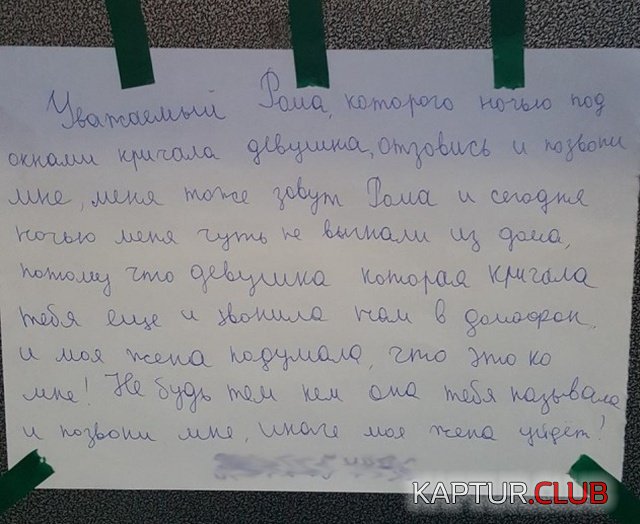 Уважаемый Рома, которого ночью под
окнами кричала девушка, отзовись и позвони
мне, меня тоже зовут Рома и сегодня
ночью меня чуть не выгнали из дома,
потому что девушка которая кричала
тебя еще и звонила нам в домофон,
и моя жена подумала, что это ко
мне! Не будь тем кем она тебя называла
и позвони мне, иначе моя жена уйдет!
KAPTUR.CLUB